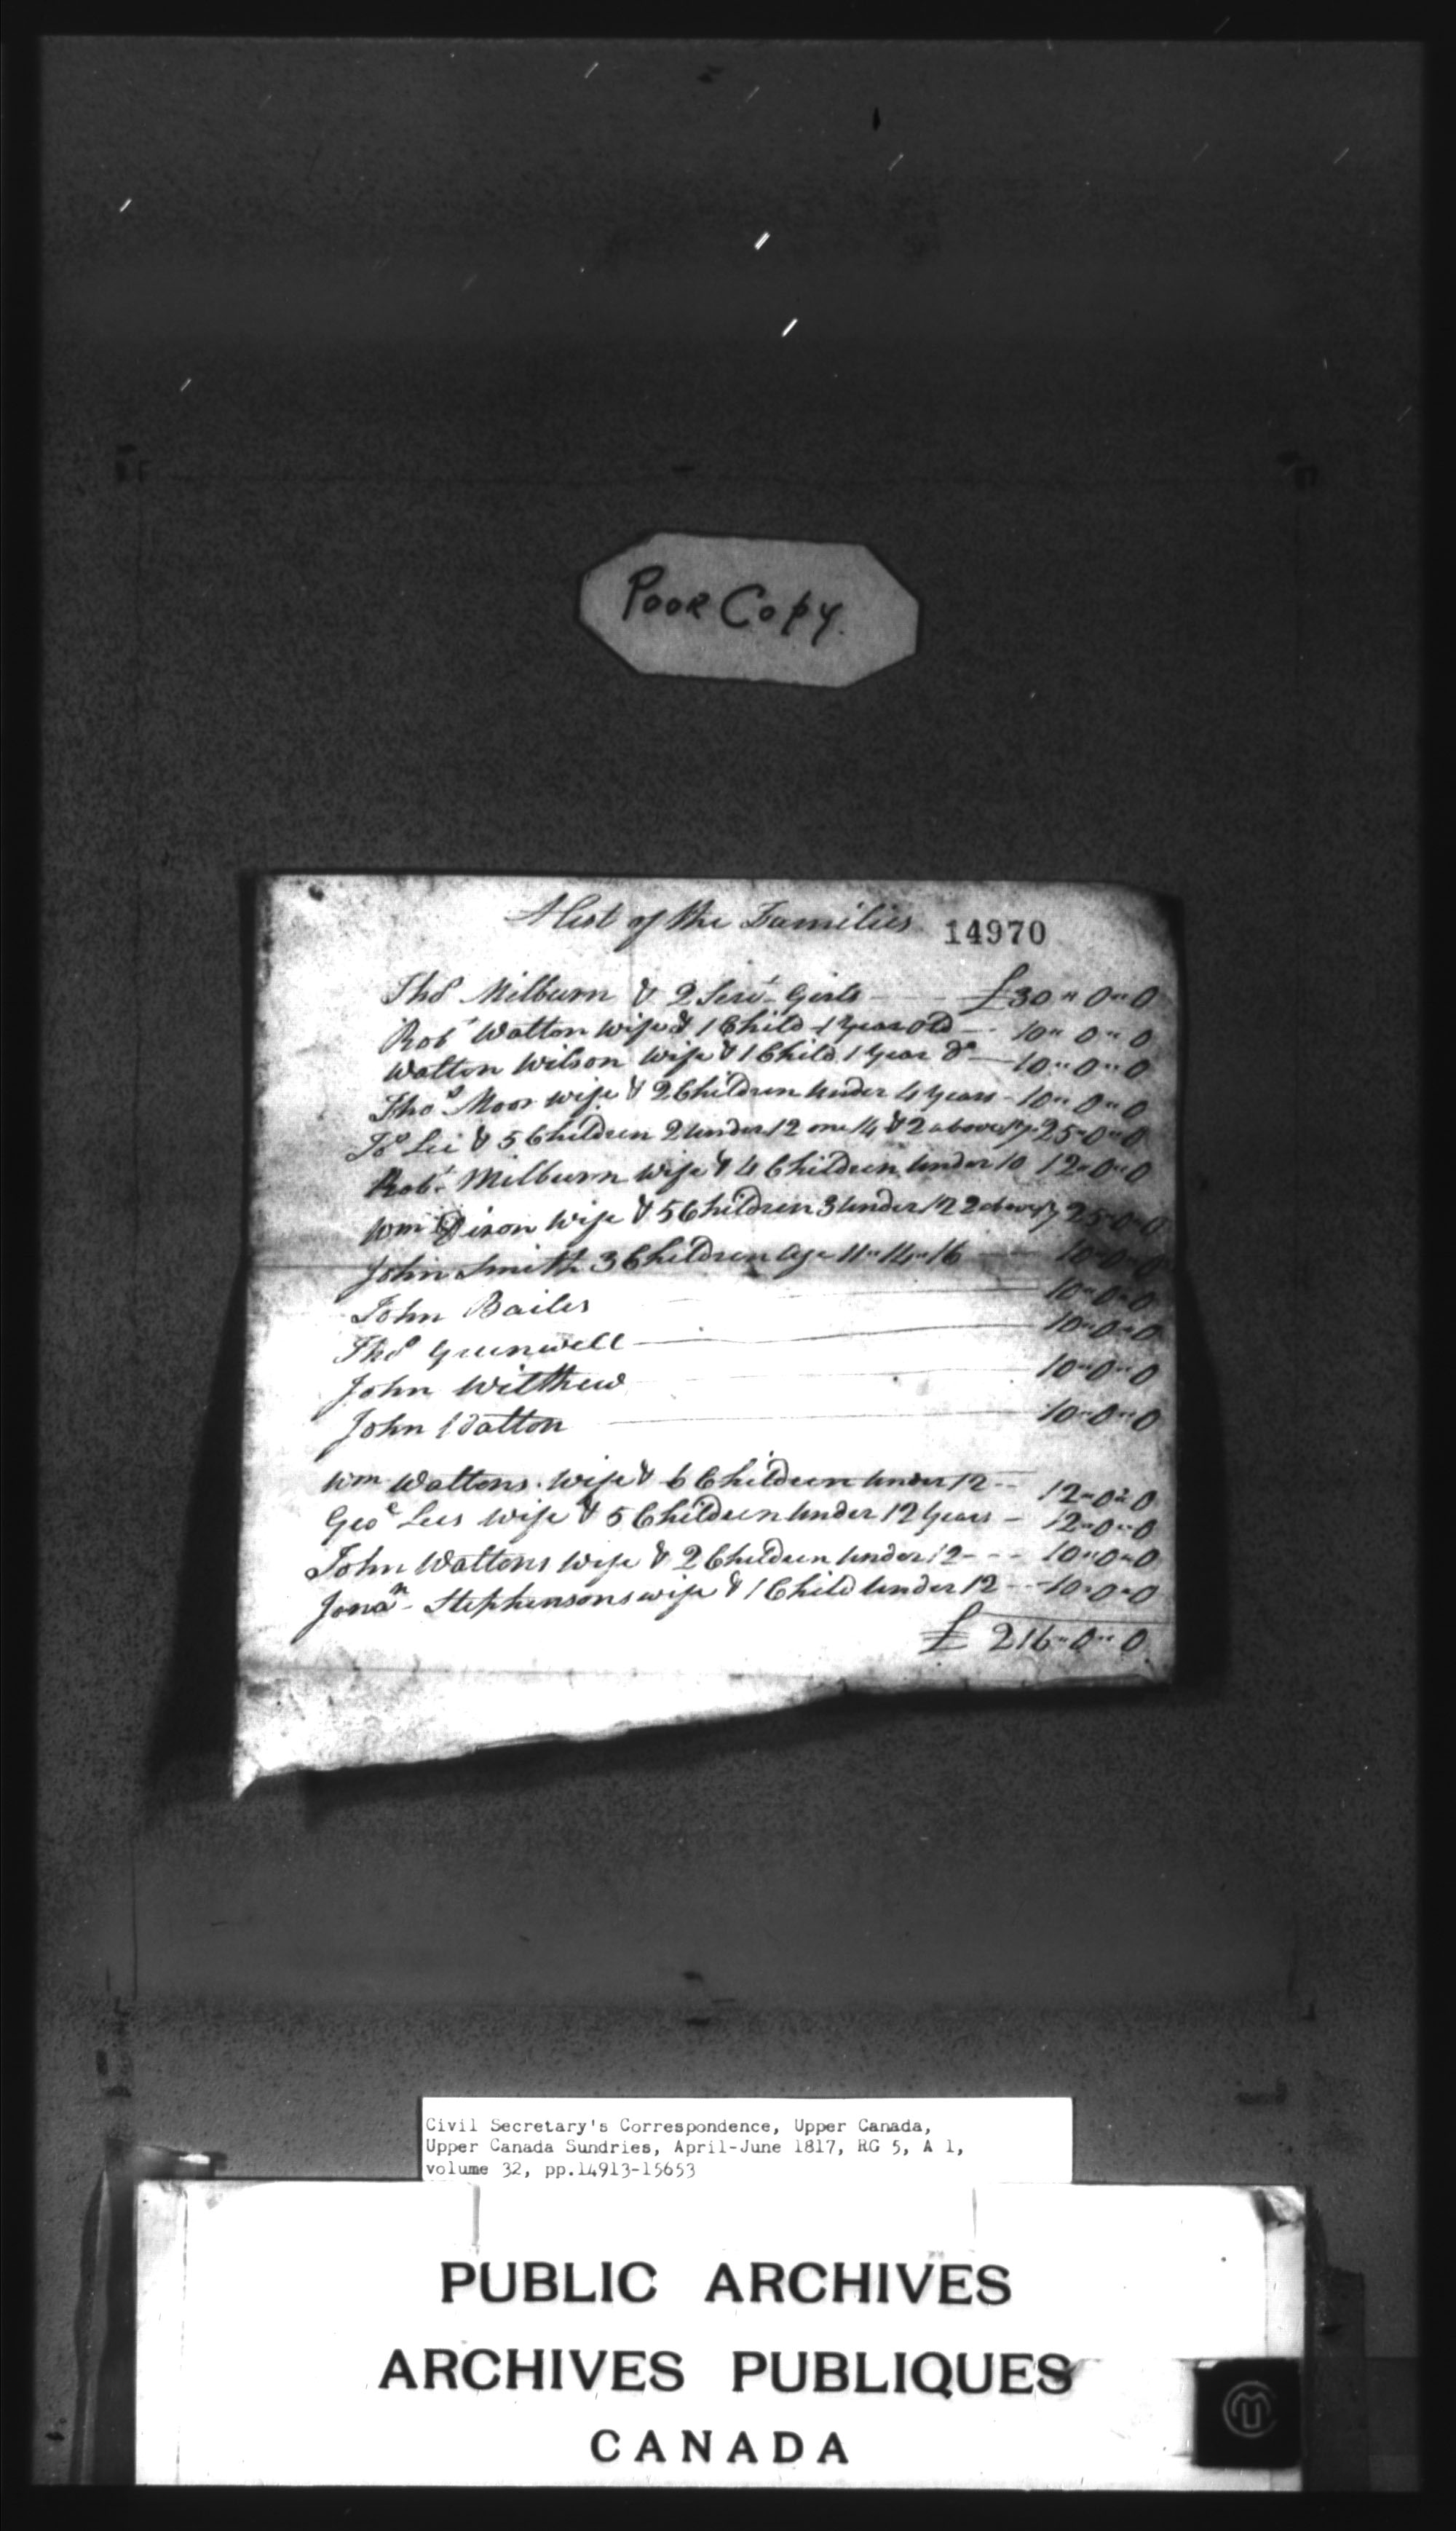 Poor Copy.
A List of the Families 14970
Thos Milburn & 2 Servt Girls £30"0"0
Robt Watton wife & 1 Child 1 year old 10"0"0
Watton Wilson wife & 1 Child 1 year Do 10"0"0
Thos Moor wife & 2 Children under 4 years 10"0"0
Lee & 5 Children 2 under 12 one 14 & 2 above 17 25"0"0
Robt Milburn wife & 4 Children under 10 12"0"0
Wm Dixon wife & 5 Children 3 under 12 2 above 17 25"0"0
John Smith 3 Children age 11"14"16 10"0"0
John Bailes 10"0"0
Thos Greenwell 10"0"0
John Witthew 10"0"0
John Watton 10"0"0
Wm Wattons wife & 6 Children under 12 12"0"0
Geoe Lees wife & 5 Children under 12 years 12"0"0
John Wattons wife & 2 Children under 12 10"0"0
Jonan Stephensons wife & 1 Child under 12 10"0"0
£ 216"0"0
Civil Secretary's Correspondence, Upper Canada,
Upper Canada Sundries, April-June 1817, RG 5, A 1,
volume 32, pp.14913-15653
PUBLIC ARCHIVES
ARCHIVES PUBLIQUES
CANADA